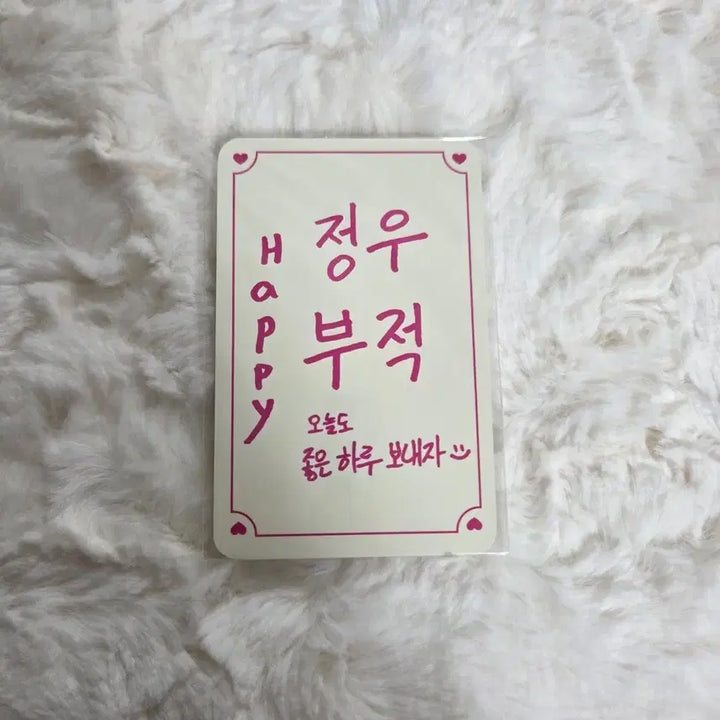 Happy
정우
부적
오늘도
좋은 하루 보내자 :)